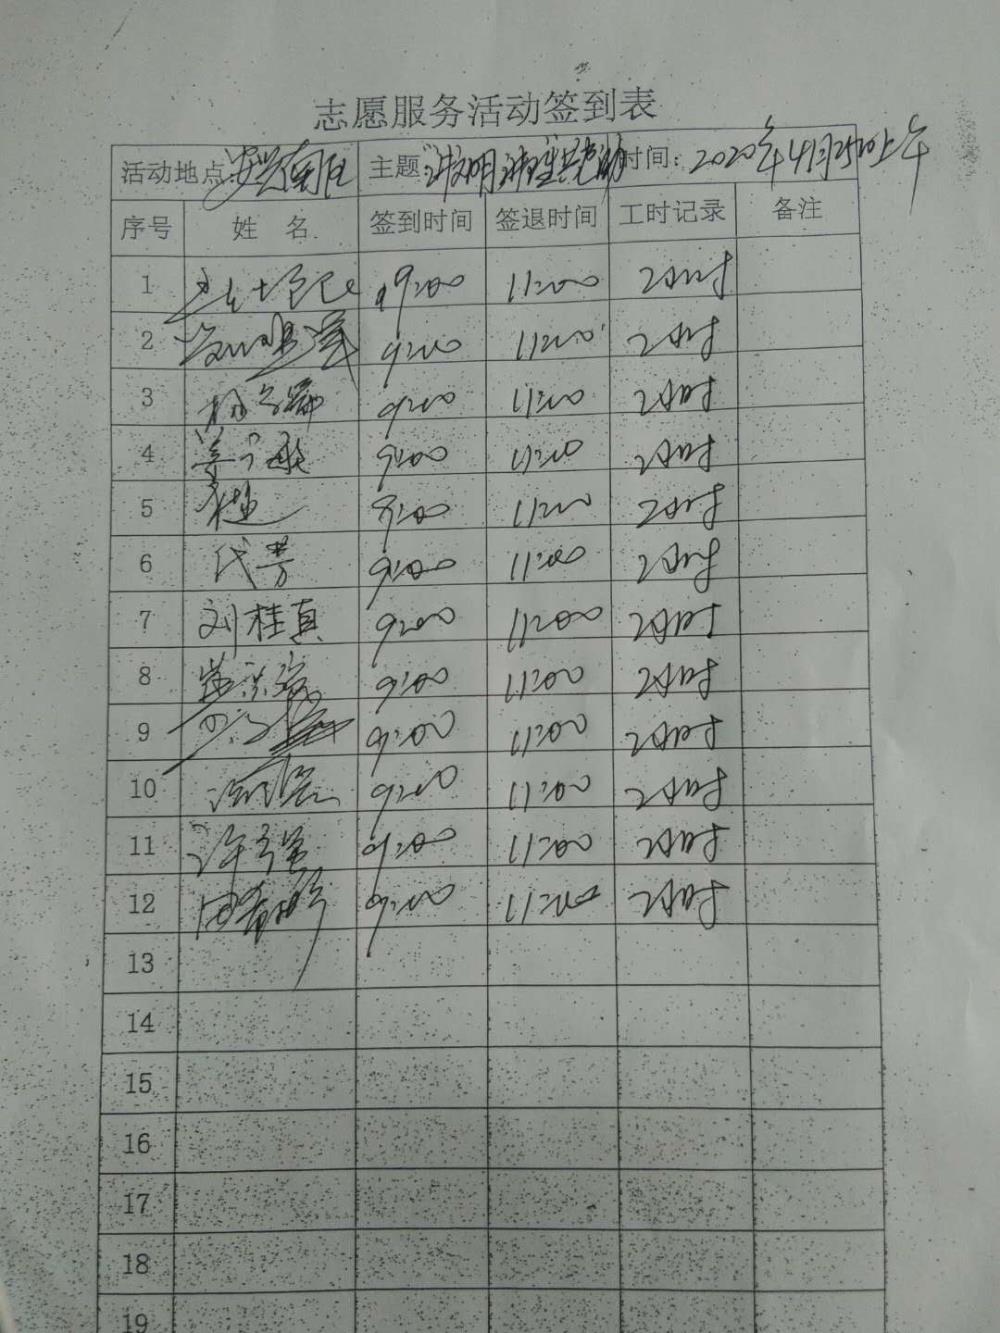 志愿服务活动签到表
活动地点:安兴南区 主题: 时间: 2020年4月25日上午
序号 姓 名 签到时间 签退时间 工时记录 备注
1 9:00 11:00 2小时
2 9:00 11:00 2小时
3 9:00 11:00 2小时
4 9:00 11:00 2小时
5 9:00 11:00 2小时
6 代芳 9:00 11:00 2小时
7 刘桂真 9:00 11:00 2小时
8 9:00 11:00 2小时
9 9:00 11:00 2小时
10 9:00 11:00 2小时
11 许 9:00 11:00 2小时
12 周 9:00 11:00 2小时
13
14
15
16
17
18
19